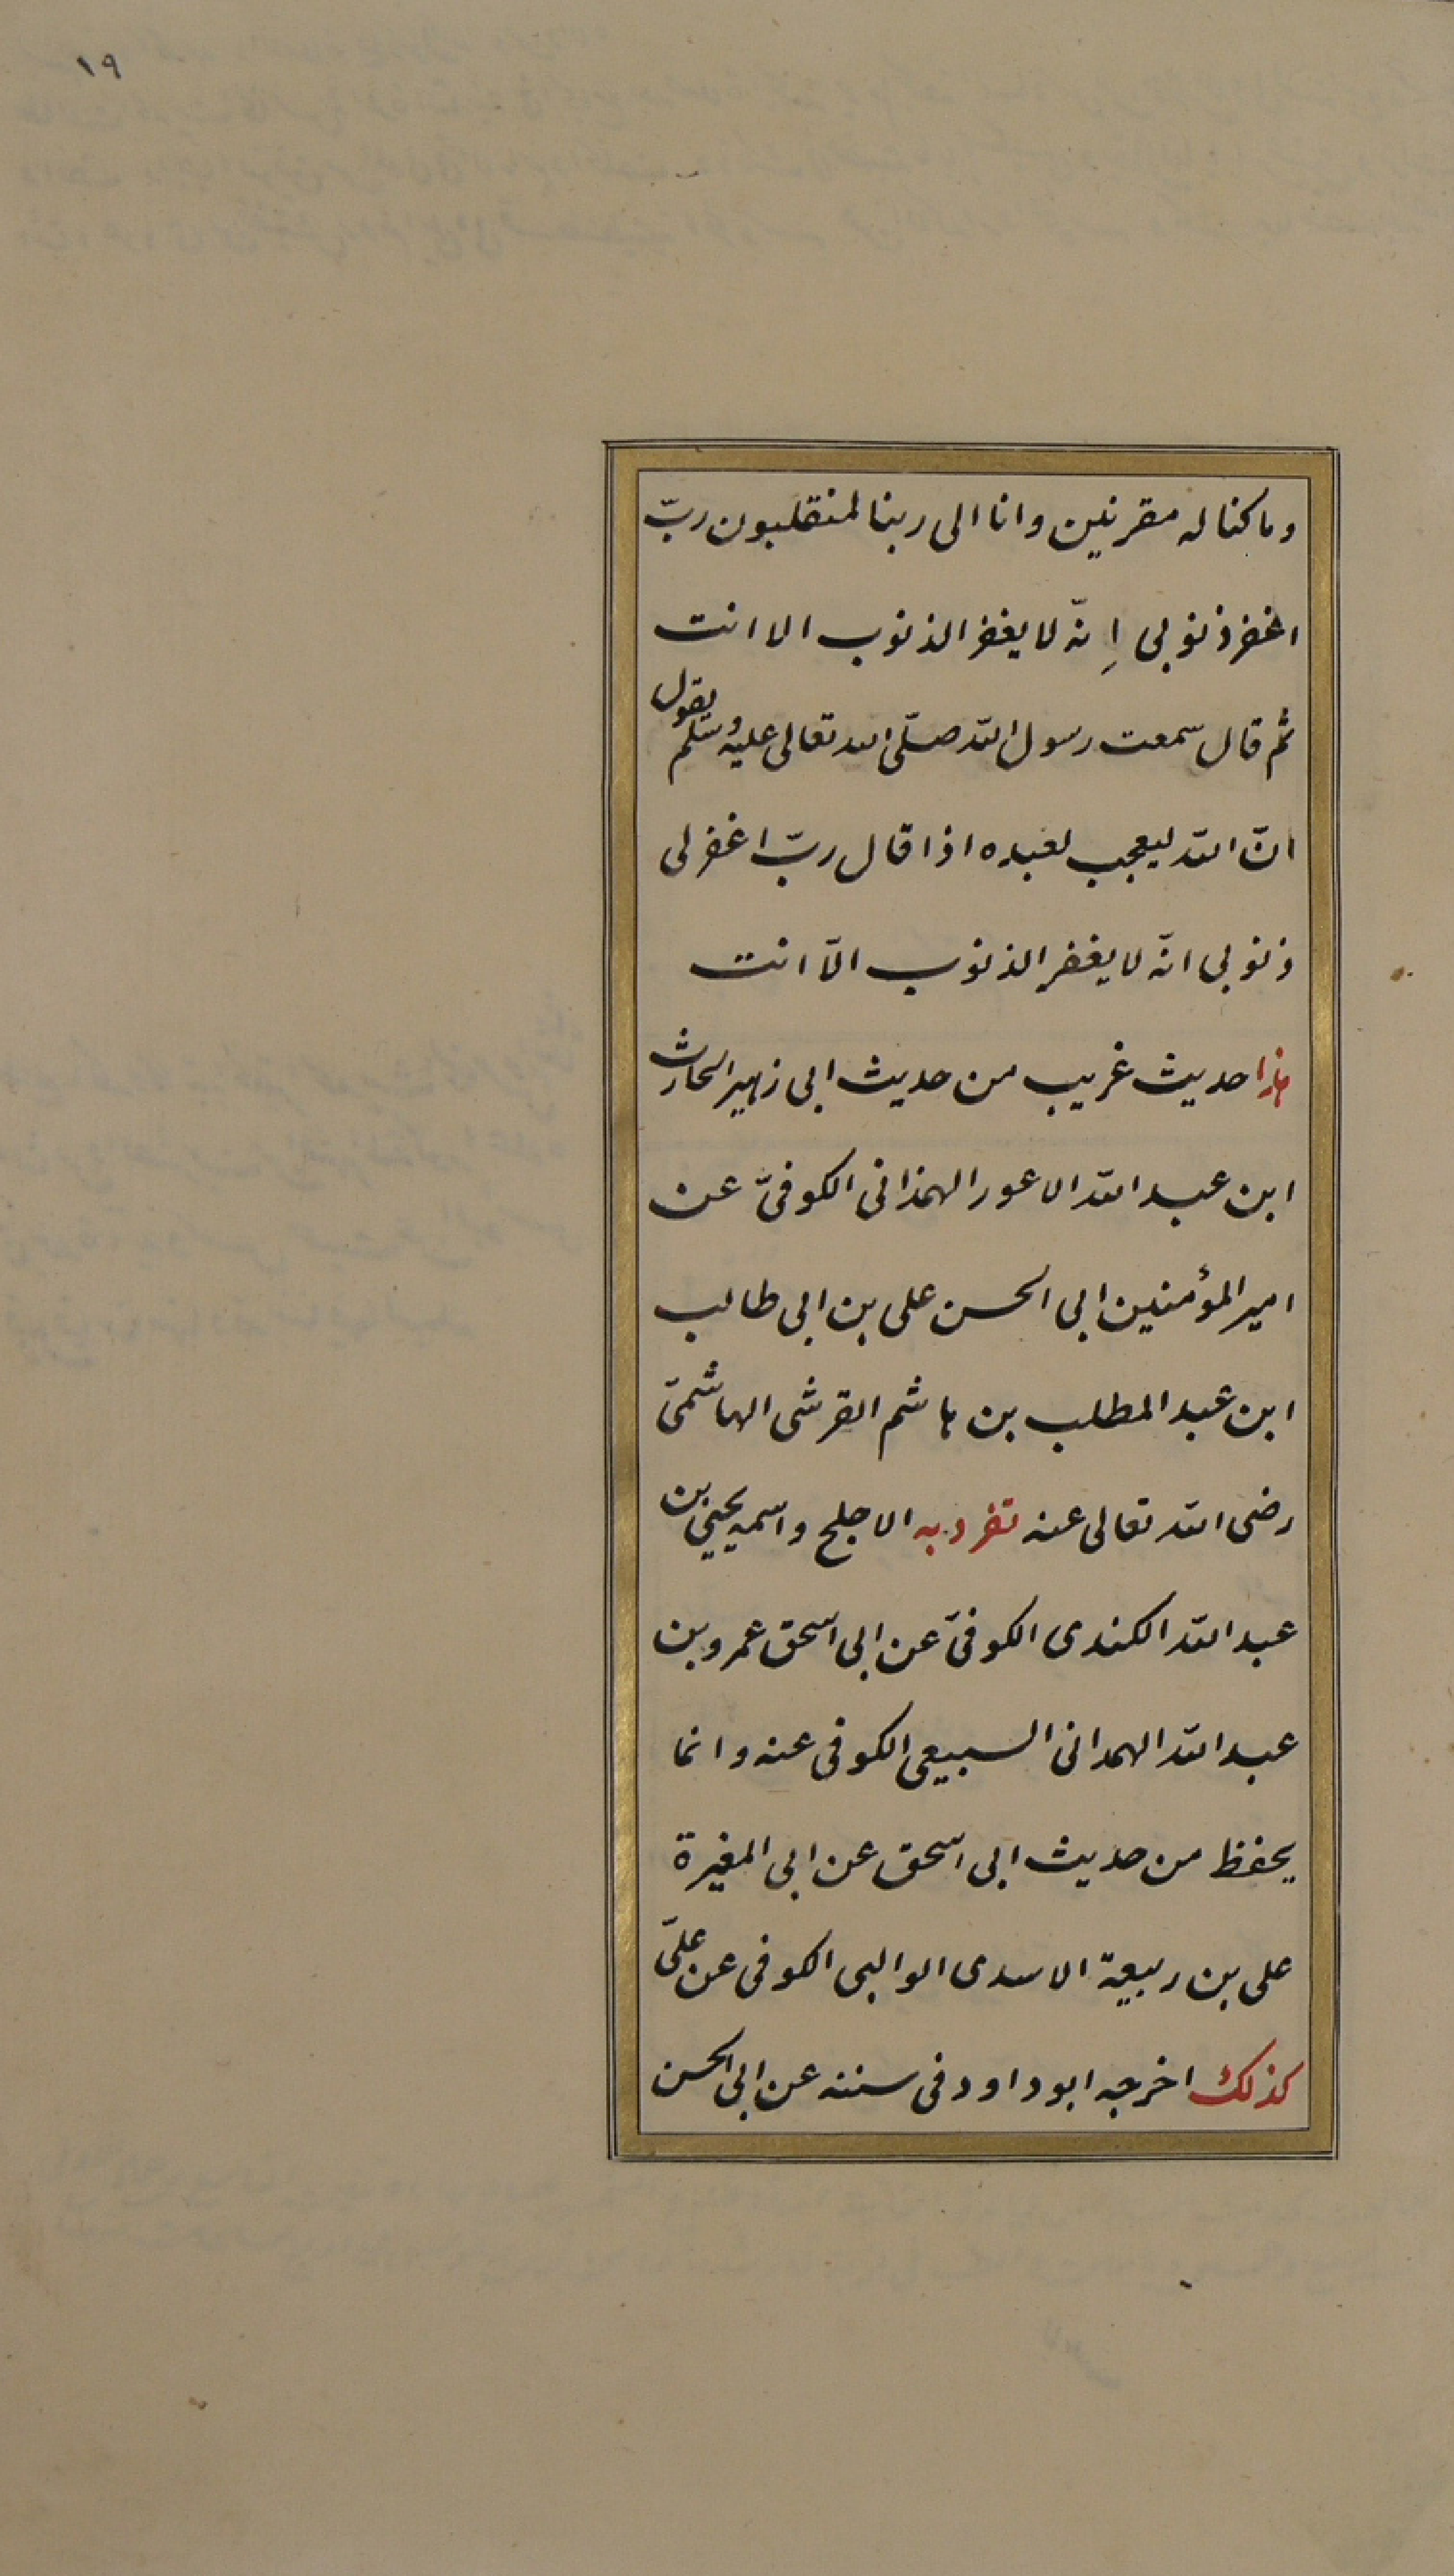 ١٩
وما كنا له مقرنين وانا الى ربنا لمنقلبون ربّ
اغفر ذنوبى إنّه لا يغفر الذنوب الا انت
ثم قال سمعت رسول الله صلّى الله تعالى عليه وسلم يقول
انّ الله ليعجب لعبده اذا قال ربّ اغفر لى
ذنوبى انّه لا يغفر الذنوب الّا انت
هذا حديث غريب من حديث ابى زهير الحارث
ابن عبد الله الاعور الهمذانى الكوفىّ عن
امير المؤمنين ابى الحسن على بن ابى طالب
ابن عبد المطلب بن هاشم القرشى الهاشمىّ
رضى الله تعالى عنه تفرد به الاجلح واسمه يحيى بن
عبد الله الكندى الكوفىّ عن ابى اسحق عمرو بن
عبد الله الهمدانى السبيعى الكوفى عنه وانما
يحفظ من حديث ابى اسحق عن ابى المغيرة
على بن ربيعة الاسدى الوالبى الكوفى عن علىّ
كذلك اخرجه ابو داود فى سننه عن ابى الحسن